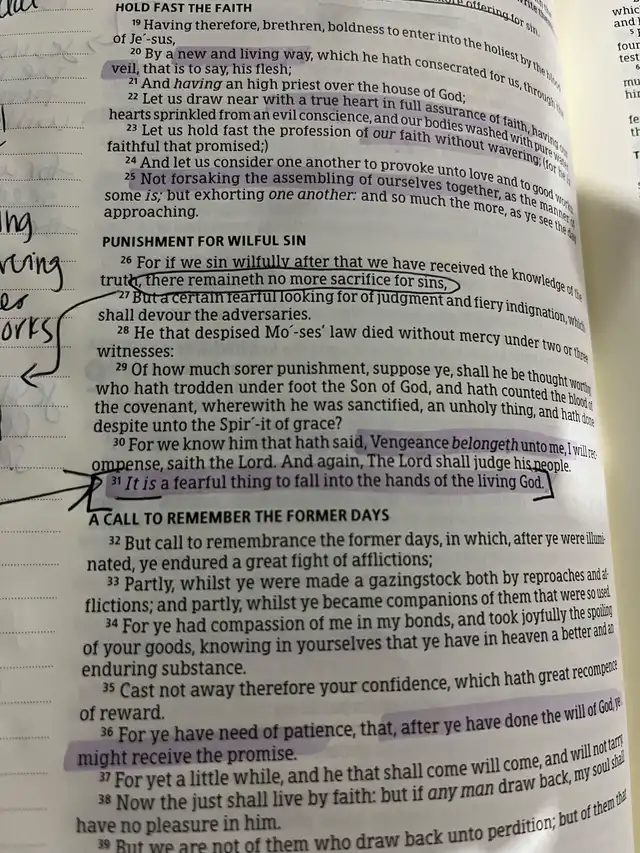 e offering for sin.
HOLD FAST THE FAITH
19 Having therefore, brethren, boldness to enter into the holiest by the blood
of Je´-sus,
20 By a new and living way, which he hath consecrated for us, through the
veil, that is to say, his flesh;
21 And having an high priest over the house of God;
22 Let us draw near with a true heart in full assurance of faith, having our
hearts sprinkled from an evil conscience, and our bodies washed with pure water.
23 Let us hold fast the profession of our faith without wavering; (for he is
faithful that promised;)
24 And let us consider one another to provoke unto love and to good works:
25 Not forsaking the assembling of ourselves together, as the manner of
some is; but exhorting one another: and so much the more, as ye see the day
approaching.
PUNISHMENT FOR WILFUL SIN
26 For if we sin wilfully after that we have received the knowledge of the
truth, there remaineth no more sacrifice for sins,
27 But a certain fearful looking for of judgment and fiery indignation, which
shall devour the adversaries.
28 He that despised Mo´-ses' law died without mercy under two or three
witnesses:
29 Of how much sorer punishment, suppose ye, shall he be thought worthy,
who hath trodden under foot the Son of God, and hath counted the blood of
the covenant, wherewith he was sanctified, an unholy thing, and hath done
despite unto the Spir´-it of grace?
30 For we know him that hath said, Vengeance belongeth unto me, I will rec-
ompense, saith the Lord. And again, The Lord shall judge his people.
31 It is a fearful thing to fall into the hands of the living God.
A CALL TO REMEMBER THE FORMER DAYS
32 But call to remembrance the former days, in which, after ye were illumi-
nated, ye endured a great fight of afflictions;
33 Partly, whilst ye were made a gazingstock both by reproaches and af-
flictions; and partly, whilst ye became companions of them that were so used.
34 For ye had compassion of me in my bonds, and took joyfully the spoiling
of your goods, knowing in yourselves that ye have in heaven a better and an
enduring substance.
35 Cast not away therefore your confidence, which hath great recompence
of reward.
36 For ye have need of patience, that, after ye have done the will of God, ye
might receive the promise.
37 For yet a little while, and he that shall come will come, and will not tarry.
38 Now the just shall live by faith: but if any man draw back, my soul shall
have no pleasure in him.
39 But we are not of them who draw back unto perdition; but of them that